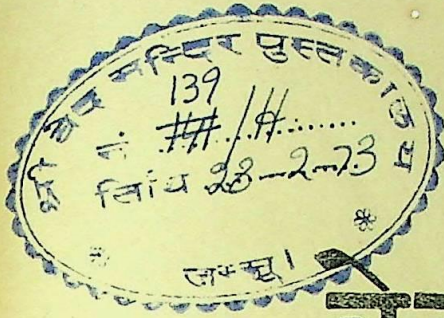 श्री वेद मन्दिर पुस्तकालय
139
नं
तिथि 23-2-73
जम्मू।